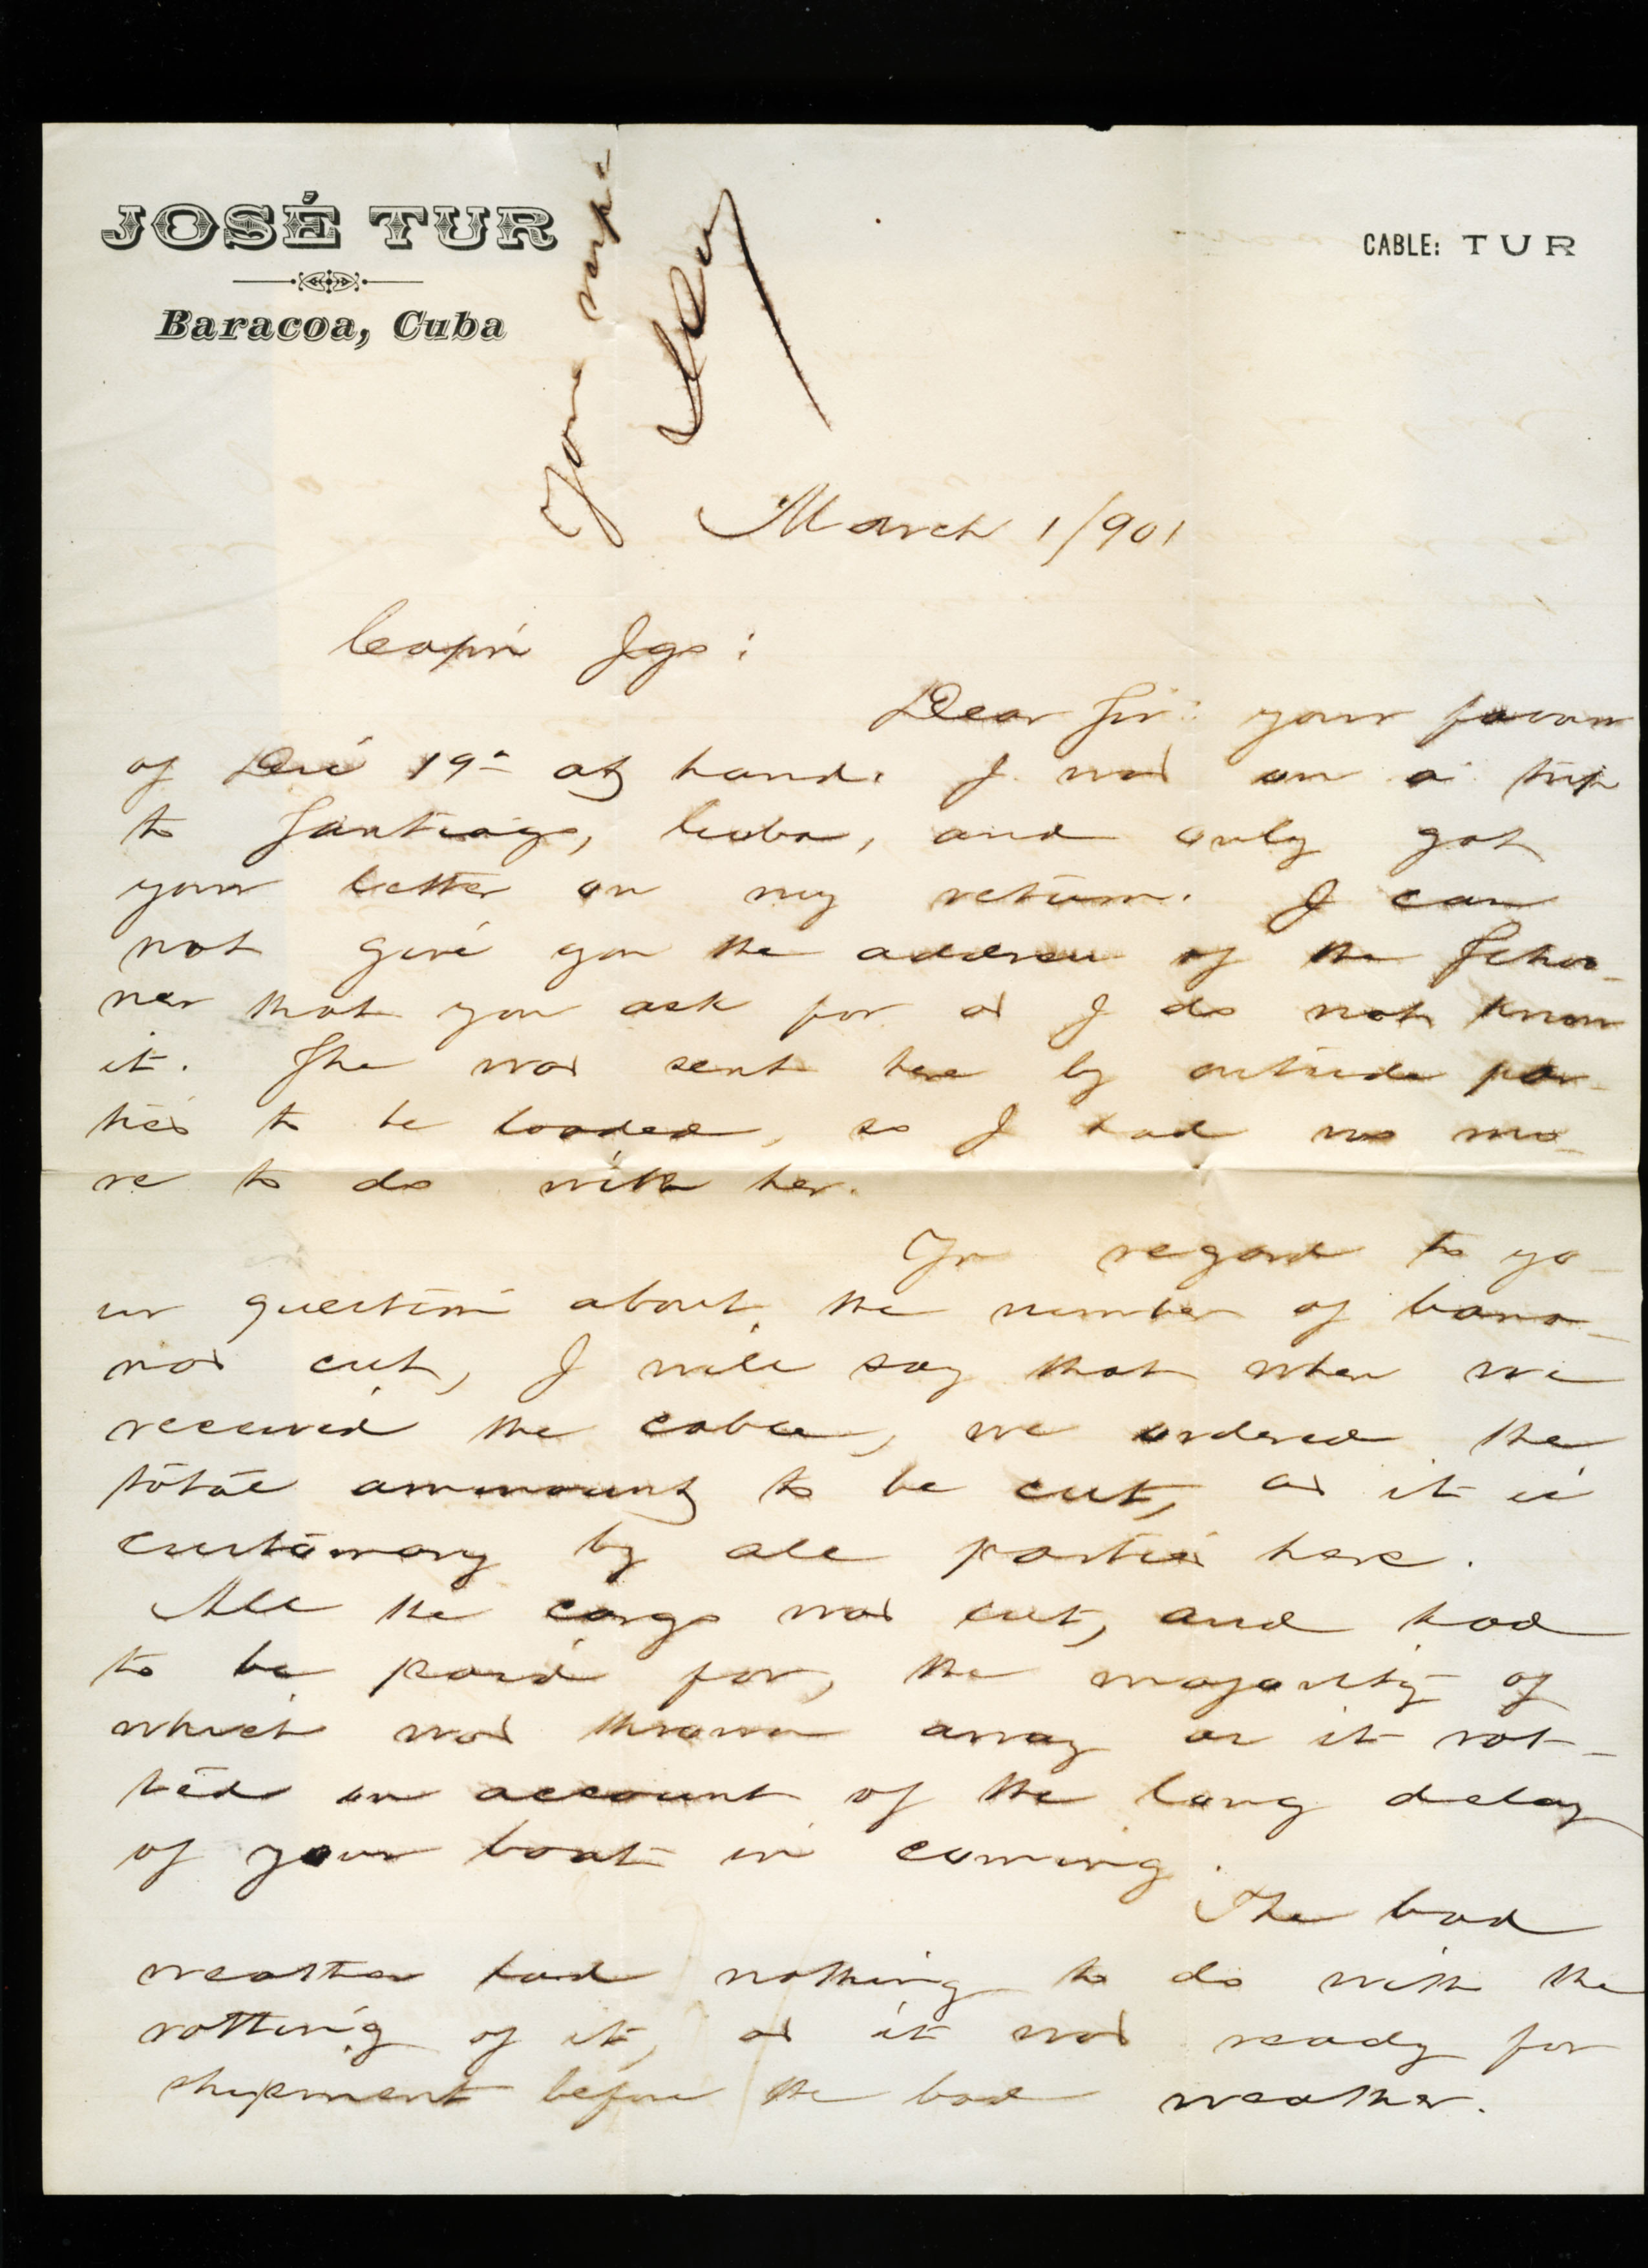 JOSÉ TUR
Baracoa, Cuba
CABLE: TUR
March 1/901
Dear Sir: your favor
of Dec 19th at hand. I was on a trip
to Santiago, Cuba, and only got
your letter on my return. I can
not give you the address of the Schoo-
ner that you ask for as I do not know
it. She was sent here by outside par-
ties to be loaded, so I had no mo-
re to do with her.
In regard to yo-
ur question about the number of bana-
nas cut, I will say that when we
received the cable, we ordered the
total ammount to be cut, as it is
customary by all parties here.
All the cargo was cut, and had
to be paid for, the majority of
which was thrown away or it rot-
ted on account of the long delay
of your boat in coming.
The bad
weather had nothing to do with the
rotting of it, as it was ready for
shipment before the bad weather.